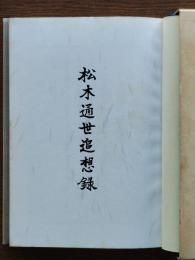 松木通世追想録